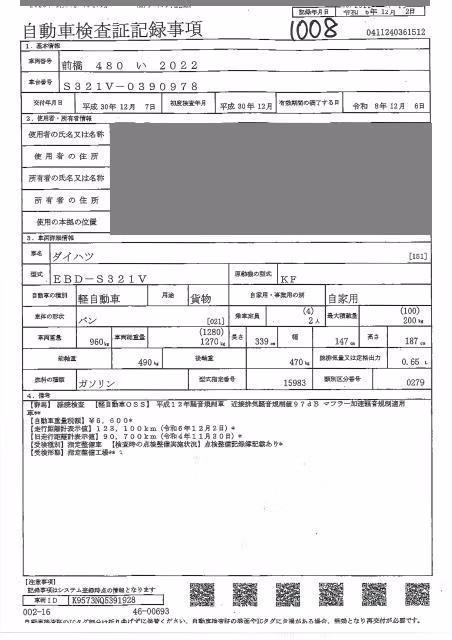 記録年月日 令和 6年12月 2日
自動車検査証記録事項
1008
0411240361512
1. 基本情報
車両番号 前橋 480 い 2022
車台番号 S321V-0390978
交付年月日 平成30年12月 7日 初度検査年月 平成30年12月 有効期間の満了する日 令和 8年12月 6日
2. 使用者・所有者情報
使用者の氏名又は名称
使用者の住所
所有者の氏名又は名称
所有者の住所
使用の本拠の位置
3. 車両詳細情報
車名 ダイハツ [151]
型式 EBD-S321V 原動機の型式 KF
自動車の種別 軽自動車 用途 貨物 自家用・事業用の別 自家用
車体の形状 バン [021] 乗車定員 (4) 2人 最大積載量 (100) 200kg
車両重量 960kg 車両総重量 (1280) 1270kg 長さ 339cm 幅 147cm 高さ 187cm
前軸重 490kg 後軸重 470kg 総排気量又は定格出力 0.65L
燃料の種類 ガソリン 型式指定番号 15983 類別区分番号 0279
4. 備考
【群馬】 継続検査 【軽自動車OSS】 平成12年騒音規制車 近接排気騒音規制値97dB マフラー加速騒音規制適用
車**
【自動車重量税額】 ¥6,600*
【走行距離計表示値】 123,100km (令和6年12月2日)*
【旧走行距離計表示値】 90,700km (令和4年11月30日)*
【受検種別】 指定整備車 【検査時の点検整備実施状況】 点検整備記録簿記載あり*
【受検形態】 指定整備工場**
【注意事項】
記録事項はシステム登録時点の情報となります
車両ID K9573NQ5391928
002-16 46-00693